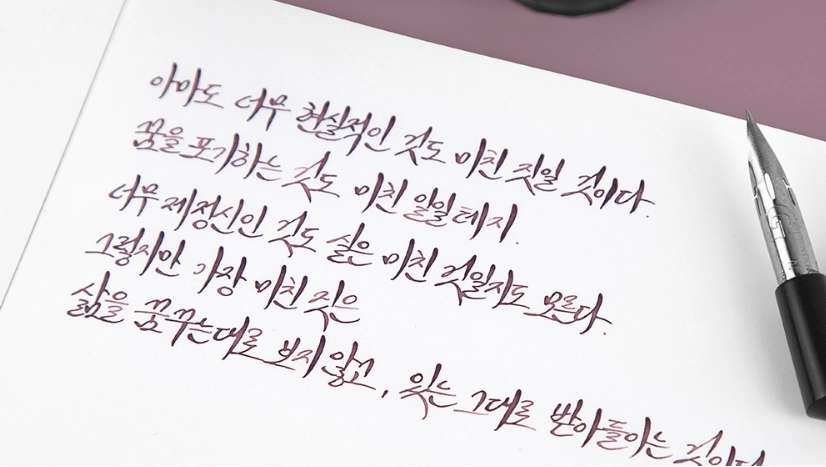 아마도 너무 현실적인 것도 미친 짓일 것이다.
꿈을 포기하는 것도 미친 일일테지.
너무 제정신인 것도 실은 미친 것일지도 모른다.
그렇지만 가장 미친 짓은
삶을 꿈꾸는대로 보지 않고, 있는 그대로 받아들이는 것이다